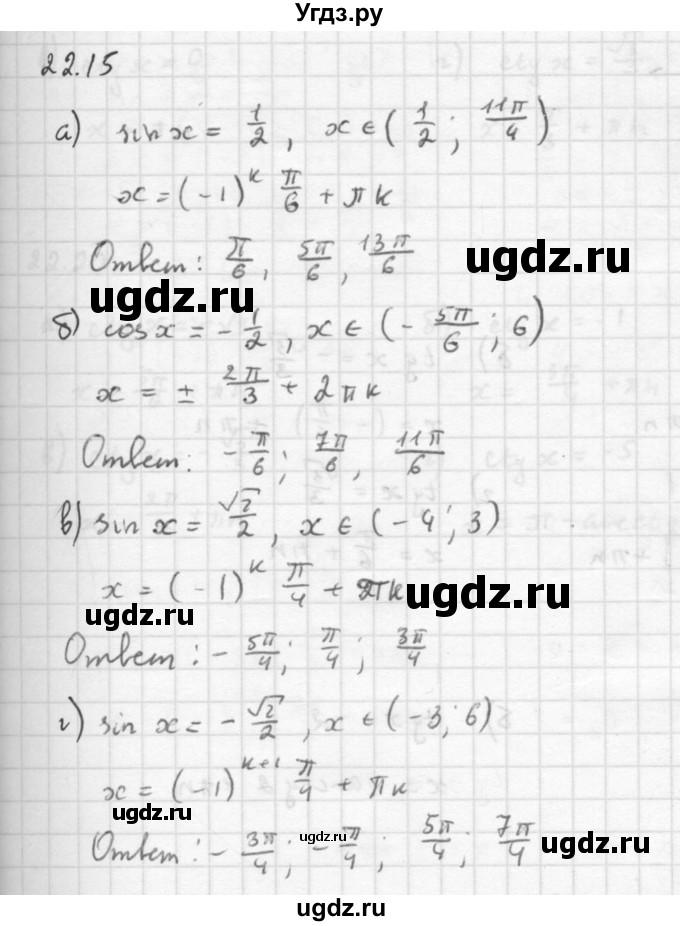 Угдз.ру
22.15
а) sin x = 1/2, x ∈ (1/2; 11π/4)
x = (-1)^k π/6 + πk
Ответ: π/6, 5π/6, 13π/6
ugdz.ru
ugdz.ru
б) cos x = -1/2, x ∈ (-5π/6; 6)
x = ± 2π/3 + 2πk
Ответ: -π/6; 7π/6, 11π/6
в) sin x = √2/2, x ∈ (-4; 3)
x = (-1)^k π/4 + πk
ugdz.ru
ugdz.ru
Ответ: -5π/4; π/4; 3π/4
г) sin x = -√2/2, x ∈ (-3; 6)
x = (-1)^k+1 π/4 + πk
ugdz.ru
ugdz.ru
ugdz.ru
Ответ: -3π/4; -π/4; 5π/4; 7π/4
ugdz.ru